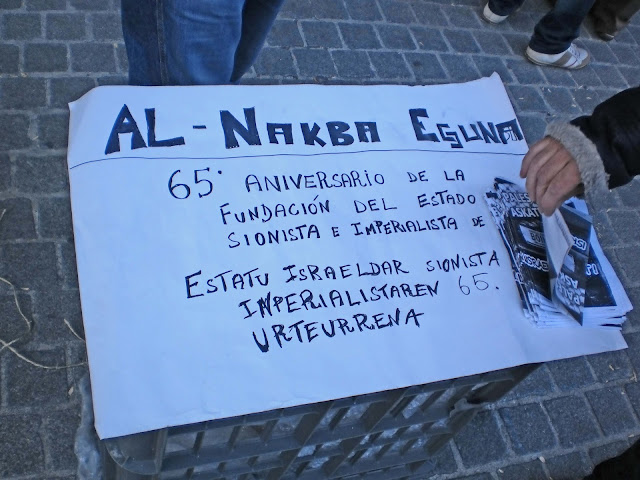 AL-NAKBA EGUNA
65. ANIVERSARIO DE LA
FUNDACIÓN DEL ESTADO
SIONISTA E IMPERIALISTA DE
ESTATU ISRAELDAR SIONISTA
INPERIALISTAREN 65.
URTEURRENA